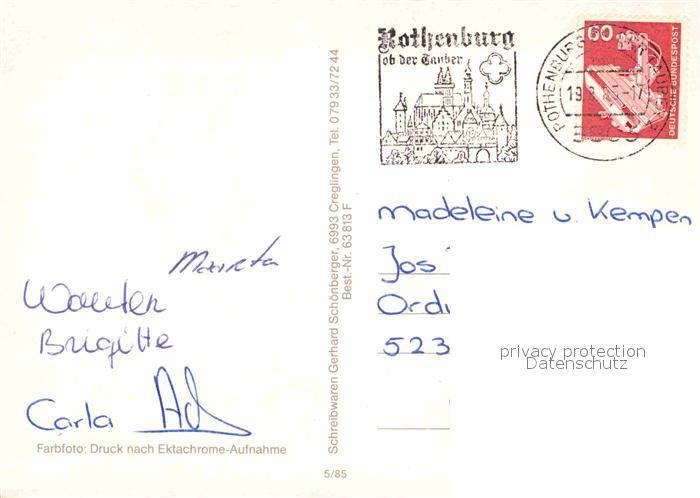 Rothenburg
ob der Tauber
60
DEUTSCHE BUNDESPOST
Schreibwaren Gerhard Schönberger, 6993 Creglingen, Tel. 0 79 33/72 44
Best.-Nr. 63 813 F
madeleine v. Kempen
Jos
Ordi
523
privacy protection
Datenschutz
Wouter
Brigitte
Carla
Farbfoto: Druck nach Ektachrome-Aufnahme
5/85